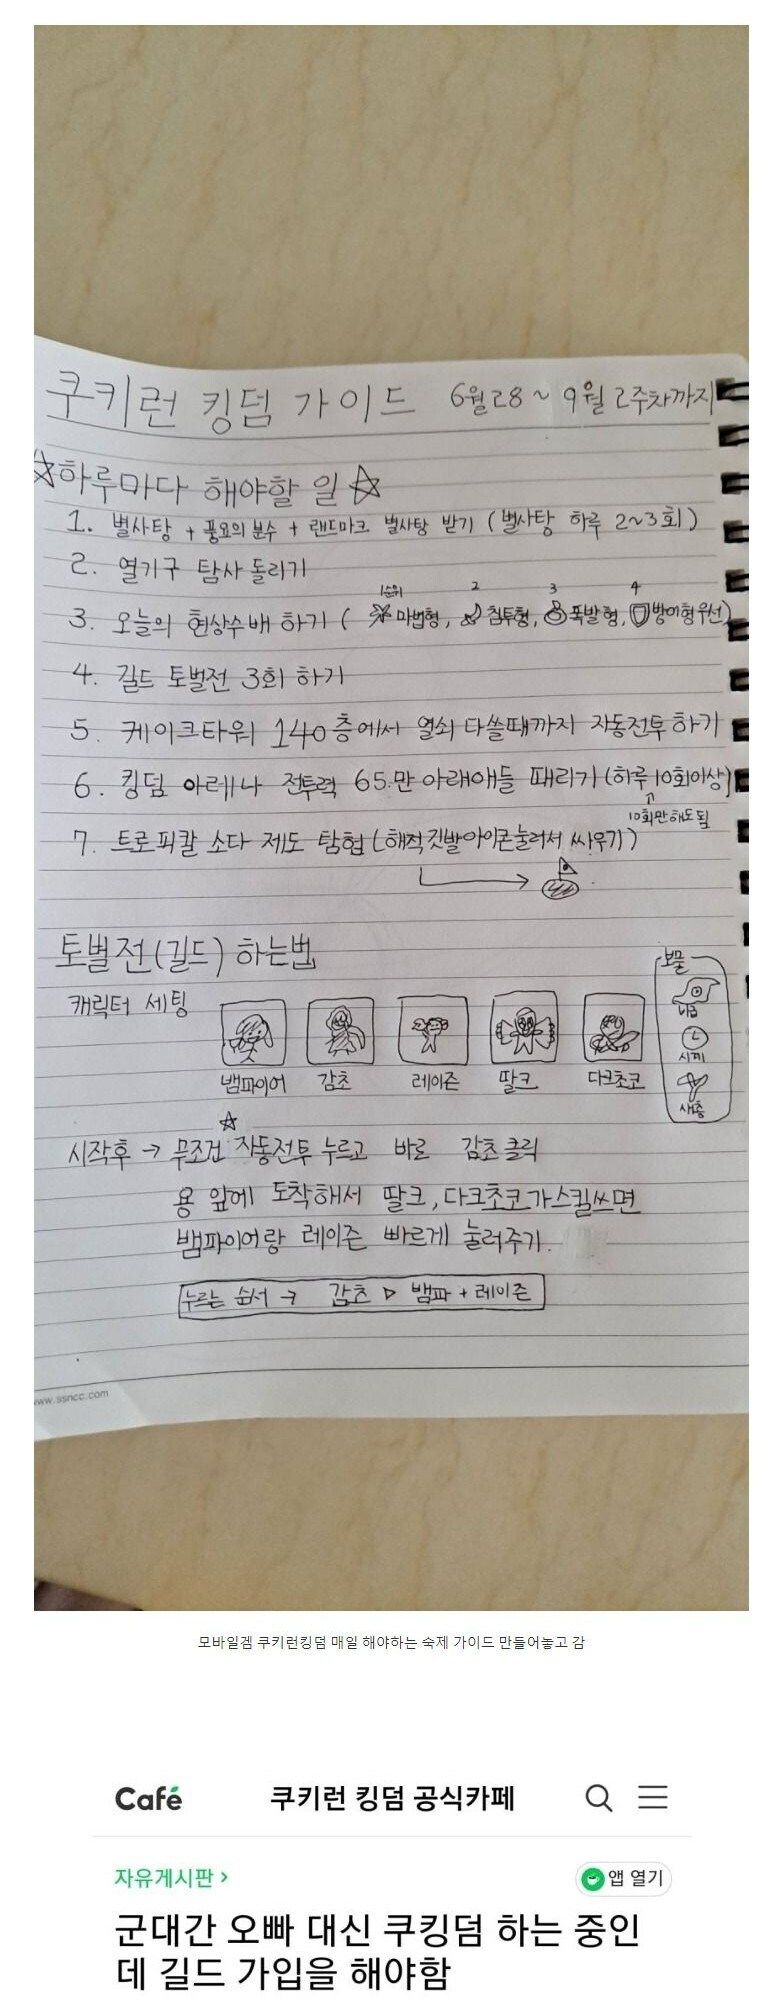 쿠키런 킹덤 가이드 6월28~9월 2주차까지
☆하루마다 해야할 일☆
1. 별사탕 + 풍요의 분수 + 랜드마크 별사탕 받기 (별사탕 하루 2~3회)
2. 열기구 탐사 돌리기
1순위 2 3 4
3. 오늘의 현상수배 하기 ( 마법형, 침투형, 폭발형, 방어형우선)
4. 길드 토벌전 3회 하기
5. 케이크타워 140층에서 열쇠 다쓸때까지 자동전투 하기
6. 킹덤 아레나 전투력 65만 아래애들 때리기 (하루 10회이상)
10회만해도됨
7. 트로피칼 소다 제도 탐험 (해적깃발아이콘눌러서 싸우기)
토벌전(길드) 하는법
보물
캐릭터 세팅
시끼
뱀파이어 감초 레이즌 딸크 다크초코
☆
시작후 → 무조건 자동전투 누르고 바로 감초클릭
용 앞에 도착해서 딸크, 다크초코가스킬쓰면
뱀파이어랑 레이즌 빠르게 눌러주기.
누르는 순서 → 감초 ▷ 뱀파 + 레이즌
www.ssncc.com
모바일겜 쿠키런킹덤 매일 해야하는 숙제 가이드 만들어놓고 감
Café 쿠키런 킹덤 공식카페
자유게시판 > 앱 열기
군대간 오빠 대신 쿠킹덤 하는 중인
데 길드 가입을 해야함